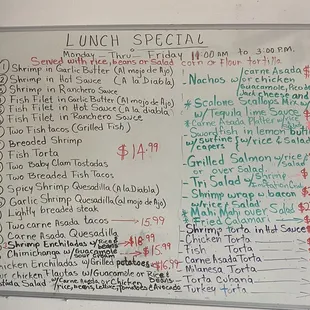 LUNCH SPECIAL
Monday Thru Friday 11:00 AM to 3:00 P.M.
Served with rice, beans or Salad corn or flour tortilla
Shrimp in Garlic Butter (Al mojo de Ajo)
Shrimp in Hot Sauce (A la Diabla)
Shrimp in Ranchero Sauce
Fish Filet in Garlic Butter (Al mojo de Ajo)
Fish Filet in Hot Sauce (A la diabla)
Fish Filet in Ranchero Sauce
Two Fish tacos (Grilled Fish)
Breaded Shrimp
Fish Torta
Two Baby Clam Tostadas
Two Breaded Fish Tacos
Spicy Shrimp Quesadilla (A la Diabla)
Garlic Shrimp Quesadilla (al mojo de Ajo)
Lightly breaded steak
$14.99
Two carne Asada tacos 15.99
Carne Asada Quesadilla
Shrimp Enchiladas w/Rice Beans $18.99
Chimichanga w/Guacamole Sour cream $15.99
Chicken Enchiladas w/Grilled potatoes $16.99
chicken flautas w/Guacamole or Rice Beans
Tostada Salad w/Carne Asada or Chicken
Rice, beans, Lettuce, Tomatoes & Avocado
-Nachos w/carne Asada
or chicken
Guacamole, Pico de
*Scallone Scallops Mix w/
w/Tequila lime Sauce
Carne Asada Plate
-Swordfish in lemon butter
capers w/rice & Salad
-Grilled Salmon w/rice &
or over Salad
-Tri Salad
Shrimp wrap w/bacon
w/rice & Salad
*Mahi Mahi over Salad
*Fried Calamari
Shrimp Torta in Hot Sauce
Chicken Torta
Fish Torta
Carne Asada Torta
Milanesa Torta
Torta Cubana
Turkey torta